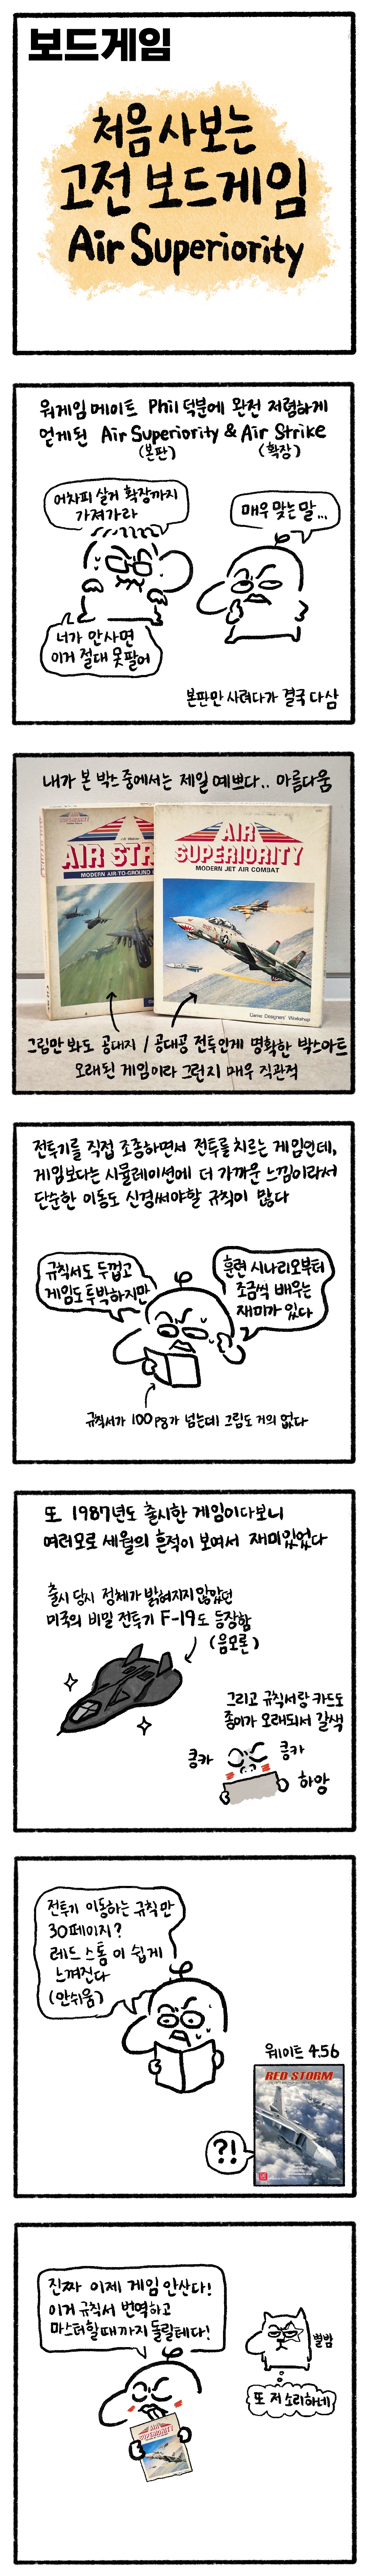 보드게임
처음 사보는
고전 보드게임
Air Superiority
워게임 메이트 Phil 덕분에 완전 저렴하게
얻게된 Air Superiority & Air Strike
(본판) (확장)
어차피 살거 확장까지
가져가라
매우 맞는 말...
너가 안사면
이거 절대 못팔어
본판만 사려다가 결국 다삼
내가 본 박스 중에서는 제일 예쁘다.. 아름다움
AIR STR
MODERN AIR-TO-GROUND
AIR
SUPERIORITY
MODERN JET AIR COMBAT
Game Designers' Workshop
그림만 봐도 공대지 / 공대공 전투인게 명확한 박스아트
오래된 게임이라 그런지 매우 직관적
전투기를 직접 조종하면서 전투를 치르는 게임인데,
게임보다는 시뮬레이션에 더 가까운 느낌이라서
단순한 이동도 신경써야할 규칙이 많다
규칙서도 두껍고
게임도 투박하지만
훈련 시나리오부터
조금씩 배우는
재미가 있다
규칙서가 100pg가 넘는데 그림도 거의 없다
또 1987년도 출시한 게임이다보니
여러모로 세월의 흔적이 보여서 재미있었다
출시 당시 정체가 밝혀지지 않았던
미국의 비밀 전투기 F-19도 등장함
(음모론)
그리고 규칙서랑 카드도
종이가 오래되서 갈색
킁카
킁카
하앙
전투기 이동하는 규칙만
30페이지?
레드 스톰이 쉽게
느껴진다
(안쉬움)
웨이트 4.56
RED STORM
?!
진짜 이제 게임 안산다!
이거 규칙서 번역하고
마스터할때까지 돌릴테다!
별밤
또 저 소리하네
AIR
SUPERIORITY